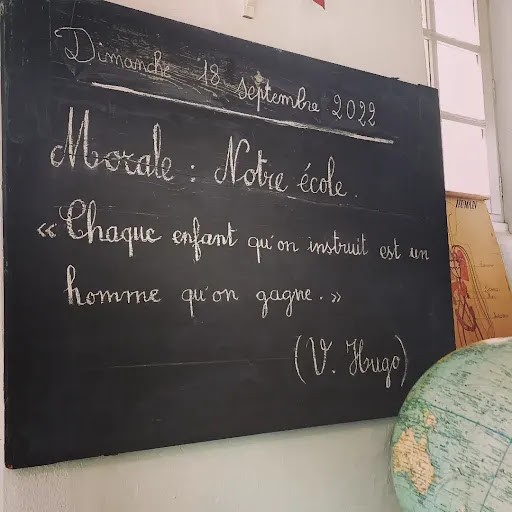 Dimanche 18 septembre 2022
Morale : Notre école.
« Chaque enfant qu'on instruit est un
homme qu'on gagne. »
(V. Hugo)
HUMAIN